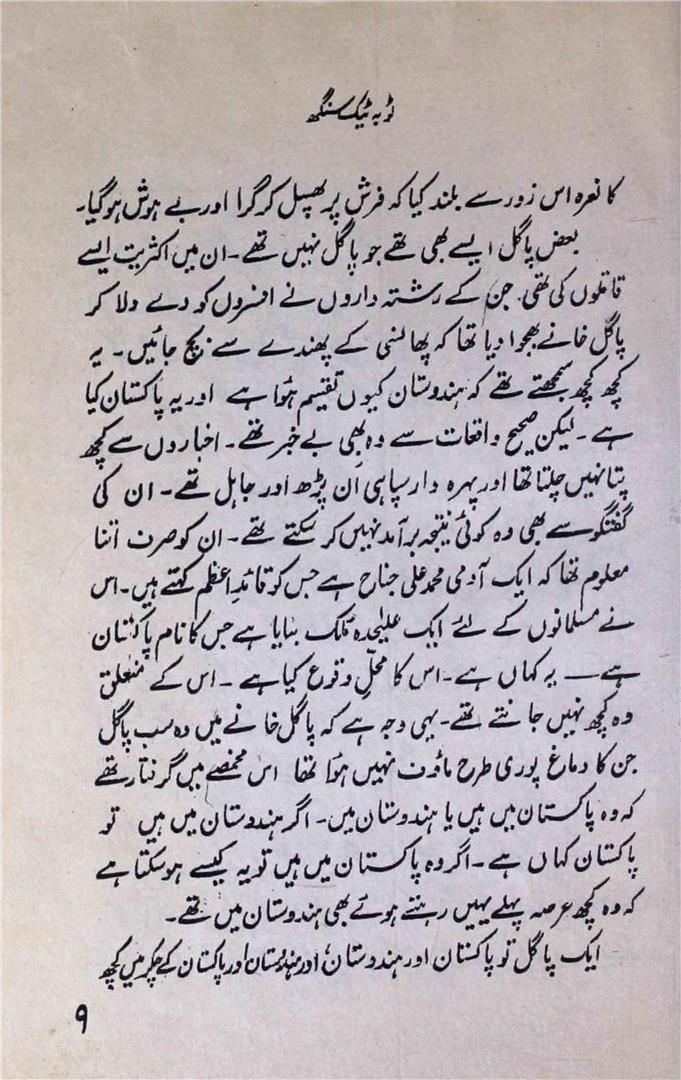 ٹوبہ ٹیک سنگھ
کا نعرہ اس زور سے بلند کیا کہ فرش پر پھسل کر گرا اور بے ہوش ہوگیا۔
بعض پاگل ایسے بھی تھے جو پاگل نہیں تھے۔ ان میں اکثریت ایسے
قاتلوں کی تھی۔ جن کے رشتہ داروں نے افسروں کو دے دلا کر
پاگل خانے بھجوا دیا تھا کہ پھانسی کے پھندے سے بچ جائیں۔ یہ
کچھ کچھ سمجھتے تھے کہ ہندوستان کیوں تقسیم ہوا ہے اور یہ پاکستان کیا
ہے۔ لیکن صحیح واقعات سے وہ بھی بے خبر تھے۔ اخباروں سے کچھ
پتا نہیں چلتا تھا اور پہرہ دار سپاہی ان پڑھ اور جاہل تھے۔ ان کی
گفتگو سے بھی وہ کوئی نتیجہ برآمد نہیں کر سکتے تھے۔ ان کو صرف اتنا
معلوم تھا کہ ایک آدمی محمد علی جناح ہے جس کو قائدِ اعظم کہتے ہیں۔ اس
نے مسلمانوں کے لئے ایک علیٰحدہ ملک بنایا ہے جس کا نام پاکستان
ہے — یہ کہاں ہے۔ اس کا محلِ وقوع کیا ہے۔ اس کے متعلق
وہ کچھ نہیں جانتے تھے۔ یہی وجہ ہے کہ پاگل خانے میں وہ سب پاگل
جن کا دماغ پوری طرح ماؤف نہیں ہوا تھا اس مخمصے میں گرفتار تھے
کہ وہ پاکستان میں ہیں یا ہندوستان میں۔ اگر ہندوستان میں ہیں تو
پاکستان کہاں ہے۔ اگر وہ پاکستان میں ہیں تو یہ کیسے ہوسکتا ہے
کہ وہ کچھ عرصہ پہلے یہیں رہتے ہوئے بھی ہندوستان میں تھے۔
ایک پاگل تو پاکستان اور ہندوستان، اور ہندوستان اور پاکستان کے چکر میں کچھ
۹